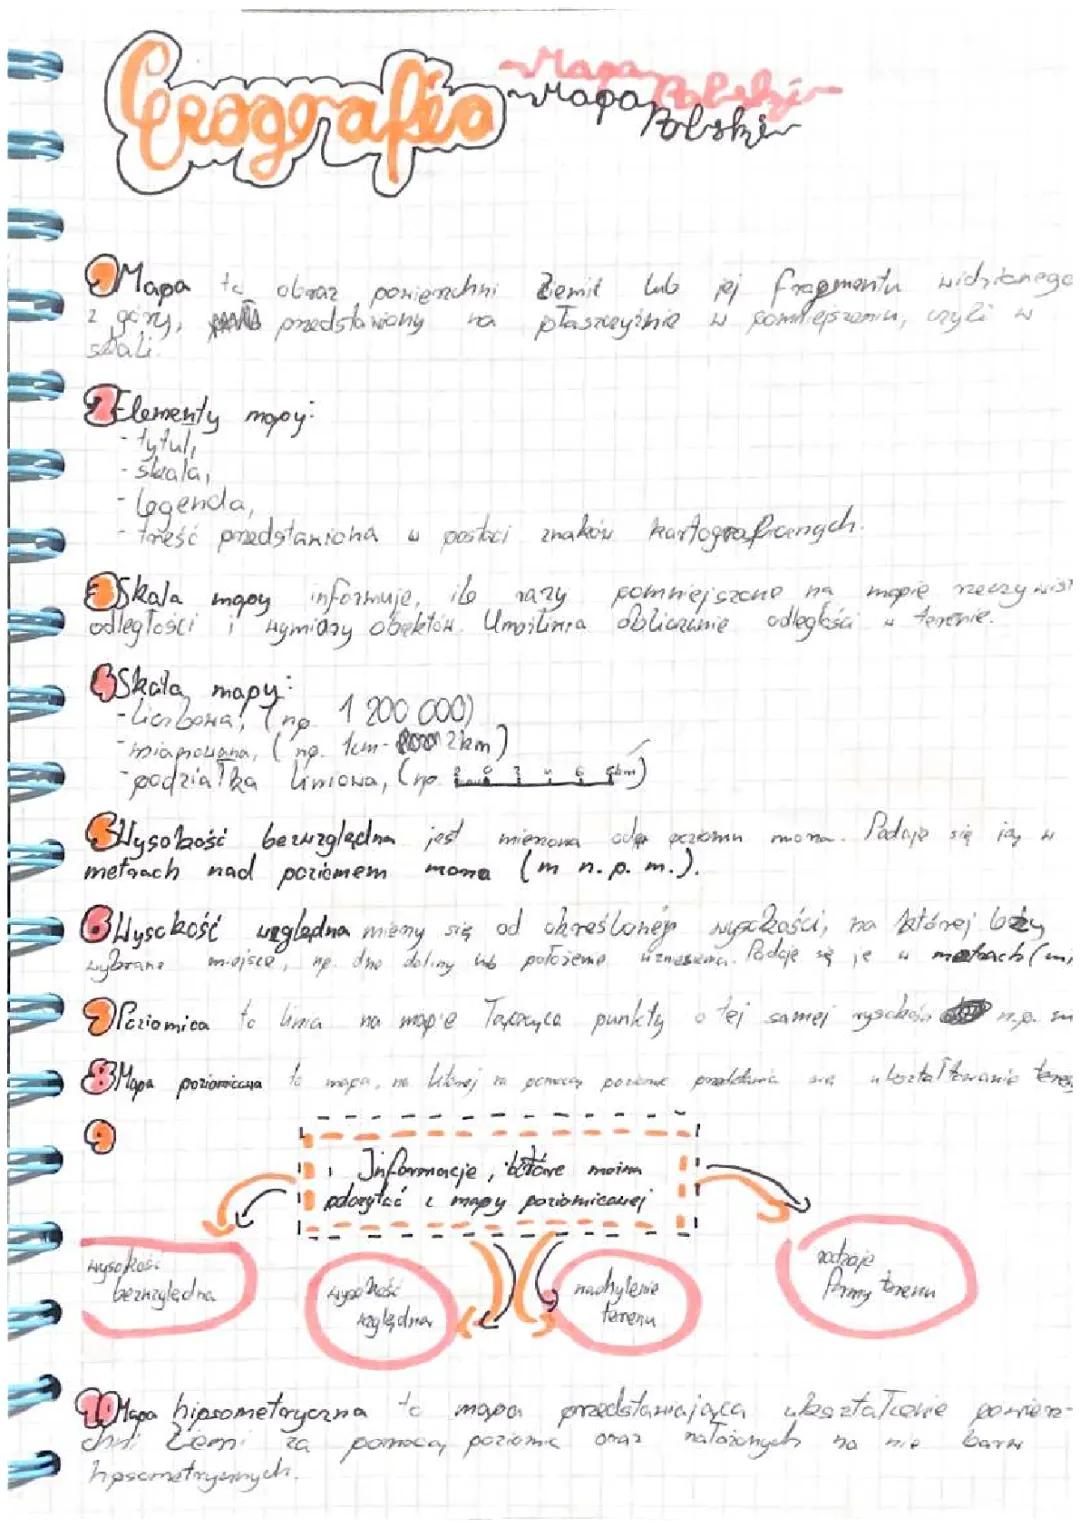 Geografia
Mapa Polski
Mapa Polski
1 Mapa to obraz powierzchni Ziemi lub jej fragmentu widzianego
z góry, przedstawiony na płaszczyźnie w pomniejszeniu, czyli w
skali.
2 Elementy mapy:
- tytuł,
- skala,
- legenda,
- treść przedstawiona w postaci znaków kartograficznych.
3 Skala mapy informuje, ile razy pomniejszono na mapie rzeczywist
odległości i wymiary obiektów. Umożliwia obliczanie odległości w terenie.
4 Skala mapy:
- liczbowa, (np. 1 200 000)
- mianowana, (np. 1cm- 2km)
- podziałka liniowa, (np.
5 Wysokość bezwzględna jest mierzona poziomu morza. Podaje się ją w
metrach nad poziomem morza (m n.p.m.).
6 Wysokość względna mierzy się od określonej wysokości, na której leży
wybrane miejsce, np. dno doliny lub położenie wzniesienia. Podaje się je w metrach (m
7 Poziomica to linia na mapie łącząca punkty o tej samej wysokości n.p. m
8 Mapa poziomicowa to mapa, na której za pomocą poziomic przedstawia się ukształtowanie teren
9
Informacje, które można
odczytać z mapy poziomicowej
wysokość
bezwzględna
wysokość
względna
nachylenie
terenu
rodzaje
formy terenu
Mapa hipsometryczna to mapa przedstawiająca ukształtowanie powierz-
chni Ziemi za pomocą poziomic oraz nałożonych na nie barw
hipsometrycznych.